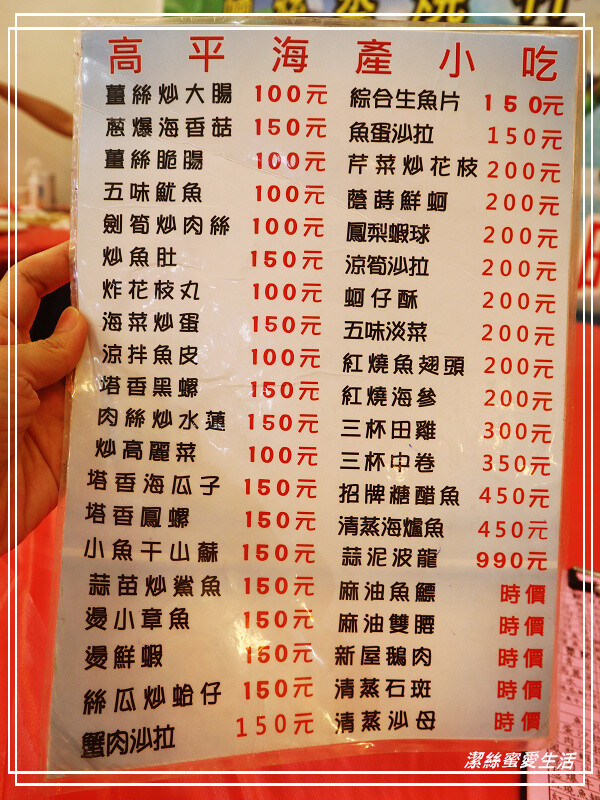 高平海產小吃
薑絲炒大腸 100元
蔥爆海香菇 150元
薑絲脆腸 100元
五味魷魚 100元
劍筍炒肉絲 100元
炒魚肚 150元
炸花枝丸 100元
海菜炒蛋 150元
涼拌魚皮 100元
塔香黑螺 150元
肉絲炒水蓮 150元
炒高麗菜 100元
塔香海瓜子 150元
塔香鳳螺 150元
小魚干山蘇 150元
蒜苗炒鯊魚 150元
燙小章魚 150元
燙鮮蝦 150元
絲瓜炒蛤仔 150元
蟹肉沙拉 150元
綜合生魚片 150元
魚蛋沙拉 150元
芹菜炒花枝 200元
蔭蒔鮮蚵 200元
鳳梨蝦球 200元
涼筍沙拉 200元
蚵仔酥 200元
五味淡菜 200元
紅燒魚翅頭 200元
紅燒海參 200元
三杯田雞 300元
三杯中卷 350元
招牌糖醋魚 450元
清蒸海爐魚 450元
蒜泥波龍 990元
麻油魚鰾 時價
麻油雙腰 時價
新屋鵝肉 時價
清蒸石斑 時價
清蒸沙母 時價
潔絲蜜愛生活